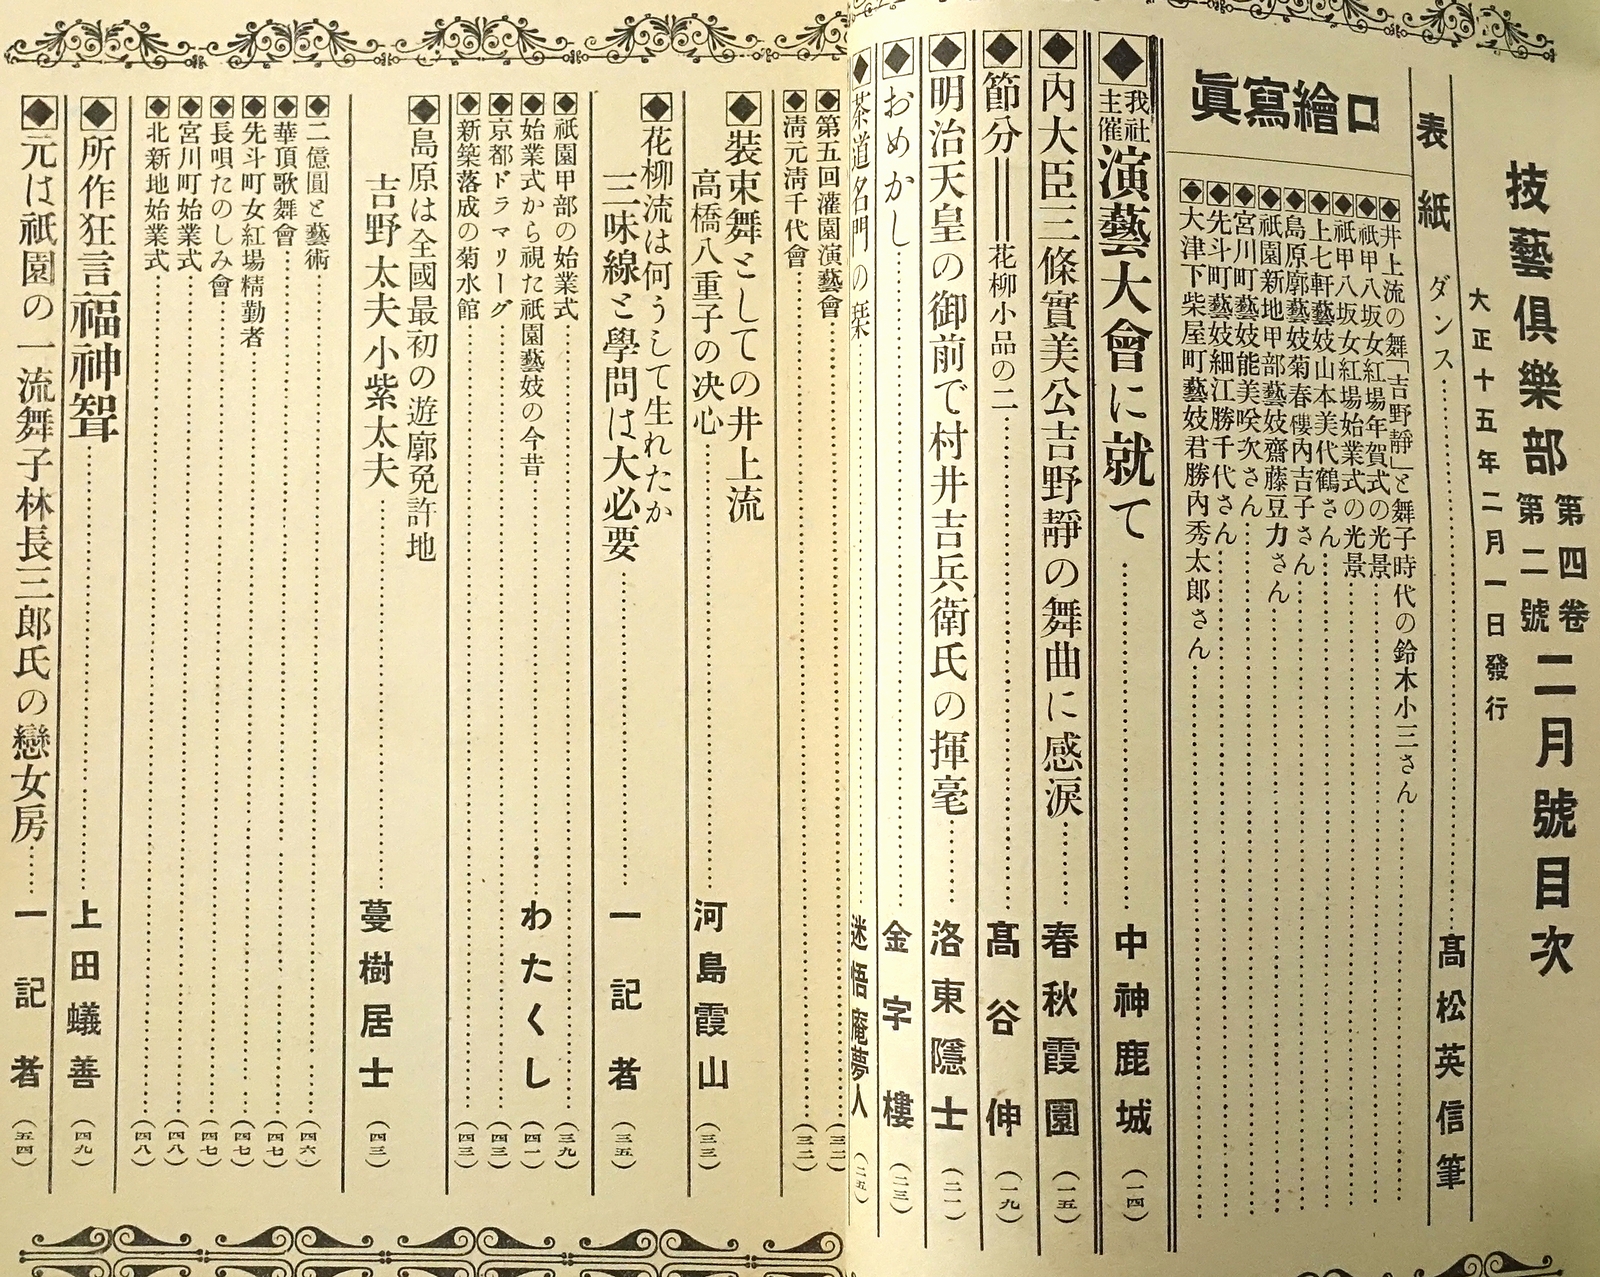 技藝倶樂部 第四卷 第二號 二月號目次
大正十五年二月一日發行
表紙 ダンス 髙松英信筆
口繪寫眞
井上流の舞「吉野靜」と舞子時代の鈴木小三さん
祇甲八坂女紅場年賀式の光景
祇甲八坂女紅場始業式の光景
上七軒藝妓山本美代鶴さん
島原廓藝妓菊春樓內吉子さん
祇園新地甲部藝妓齋藤豆力さん
宮川町藝妓能美咲次さん
先斗町藝妓細江勝千代さん
大津下柴屋町藝妓君勝內秀太郎さん
我社主催 演藝大會に就て 中神鹿城 (一四)
內大臣三條實美公吉野靜の舞曲に感淚 春秋霞園 (一五)
節分══花柳小品の二 髙谷伸 (一九)
明治天皇の御前で村井吉兵衛氏の揮毫 洛東隱士 (二一)
おめかし 金字樓 (二三)
茶道名門の栞 迷悟庵夢人 (二五)
第五回灌園演藝會 (三二)
淸元淸千代會 (三二)
裝束舞としての井上流
高橋八重子の決心 河島霞山 (三三)
花柳流は何うして生れたか
三味線と學問は大必要 一記者 (三五)
祇園甲部の始業式 (三九)
始業式から視た祇園藝妓の今昔 わたくし (四一)
京都ドラマリーグ (四三)
新築落成の菊水館 (四三)
島原は全國最初の遊廓免許地
吉野太夫小紫太夫 蔓樹居士 (四三)
二億圓と藝術 (四六)
華頂歌舞會 (四七)
先斗町女紅場精勤者 (四七)
長唄たのしみ會 (四七)
宮川町始業式 (四八)
北新地始業式 (四八)
所作狂言福神聟 上田蟻善 (四九)
元は祇園の一流舞子林長三郎氏の戀女房 一記者 (五四)